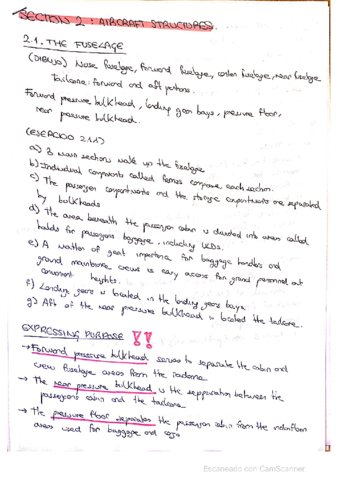 SECTION 2: AIRCRAFT STRUCTURES.
2.1. THE FUSELAGE
(DIBUJO) Nose fuselage, forward fuselage, center fuselage, rear fuselage
Tailcone: forward and aft portions.
Forward pressure bulkhead, landing gear bays, pressure floor,
rear pressure bulkhead.
(EJERCICIO 2.1.1)
a) 3 main sections make up the fuselage
b) Individual components called frames compose each section.
c) The passenger compartments and the storage compartments are separated
by bulkheads
d) The area beneath the passenger cabin is divided into areas called
holds for passengers baggage, including ULDs.
e) A matter of great importance for baggage handlers and
ground maintenance crews is easy access for ground personnel at
convenient heights.
f) Landing gears is located in the landing gears bays.
g) Aft of the rear pressure bulkhead is located the tailcone.
EXPRESSING PURPOSE !!
→ Forward pressure bulkhead serves to separate the cabin and
crew fuselage areas from the radome
→ The rear pressure bulkhead is the separation between the
passengers cabin and the tailcone
→ The pressure floor separates the passenger cabin from the
areas used for baggage and cargo
Escaneado con CamScanner